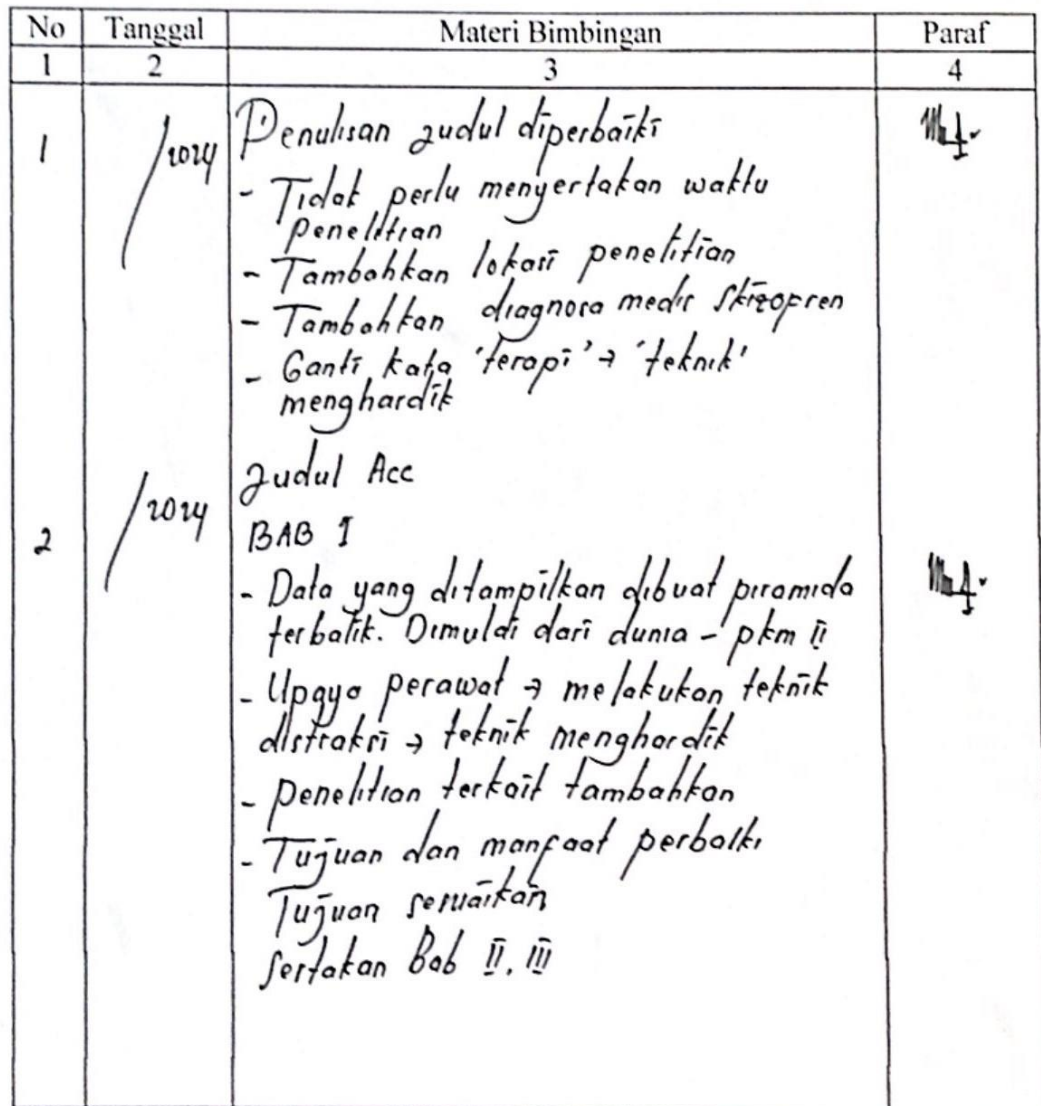 No Tanggal Materi Bimbingan Paraf
1 2 3 4
1 /2024 Penulisan Judul diperbaiki
- Tidak perlu menyertakan waktu
penelitian
- Tambahkan lokasi penelitian
- Tambahkan diagnosa medis Skizopren
- Ganti kata 'terapi' → 'teknik'
menghardik
Judul Acc
2 /2024 BAB I
- Data yang ditampilkan dibuat piramida
terbalik. Dimulai dari dunia - pkm II
- Upaya perawat → melakukan teknik
distraksi → teknik menghardik
- Penelitian terkait tambahkan
- Tujuan dan manfaat perbaiki
Tujuan sesuaikan
Sertakan Bab II, III